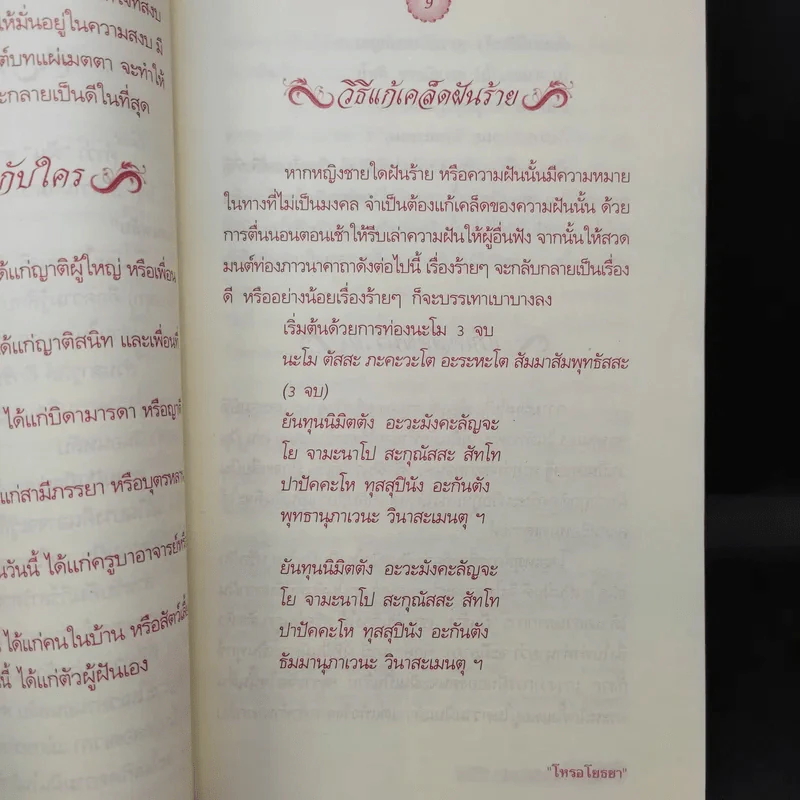 ห้มั่นอยู่ในความสงบ มี
ต์บทแผ่เมตตา จะทำให้
ะกลายเป็นดีในที่สุด
กับใคร
ด้แก่ญาติผู้ใหญ่ หรือเพื่อน
ด้แก่ญาติสนิท และเพื่อนที่
ได้แก่บิดามารดา หรือญาติ
แก่สามีภรรยา หรือบุตรหลาน
นวันนี้ ได้แก่ครูบาอาจารย์
ได้แก่คนในบ้าน หรือสัตว์
นี้ ได้แก่ตัวผู้ฝันเอง
9
วิธีแก้เคล็ดฝันร้าย
หากหญิงชายใดฝันร้าย หรือความฝันนั้นมีความหมาย
ในทางที่ไม่เป็นมงคล จำเป็นต้องแก้เคล็ดของความฝันนั้น ด้วย
การตื่นนอนตอนเช้าให้รีบเล่าความฝันให้ผู้อื่นฟัง จากนั้นให้สวด
มนต์ท่องภาวนาคาถาดังต่อไปนี้ เรื่องร้ายๆ จะกลับกลายเป็นเรื่อง
ดี หรืออย่างน้อยเรื่องร้ายๆ ก็จะบรรเทาเบาบางลง
เริ่มต้นด้วยการท่องนะโม 3 จบ
นะโม ตัสสะ ภะคะวะโต อะระหะโต สัมมาสัมพุทธัสสะ
(3 จบ)
ยันทุนนิมิตตัง อะวะมังคะลัญจะ
โย จามะนาโป สะกุณัสสะ สัทโท
ปาปัคคะโห ทุสสุปินัง อะกันตัง
พุทธานุภาเวนะ วินาสะเมนตุ ฯ
ยันทุนนิมิตตัง อะวะมังคะลัญจะ
โย จามะนาโป สะกุณัสสะ สัทโท
ปาปัคคะโห ทุสสุปินัง อะกันตัง
ธัมมานุภาเวนะ วินาสะเมนตุ ฯ
"โหรอโยธยา"